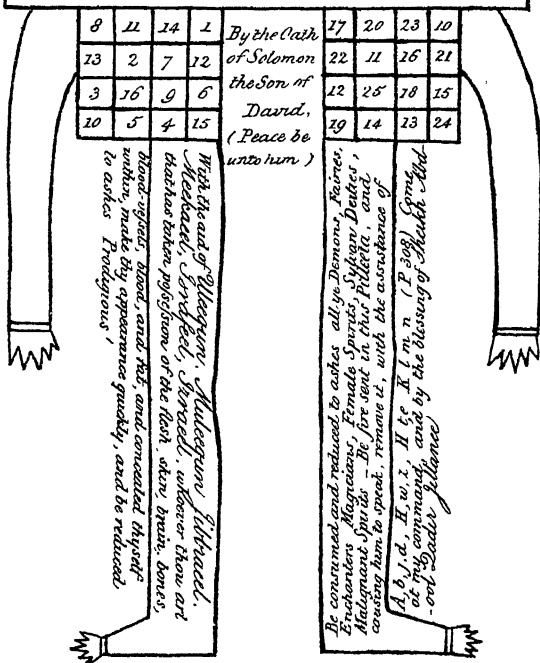 8 11 14 1
13 2 7 12
3 16 9 6
10 5 4 15
By the Oath
of Solomon
the Son of
David,
(Peace be
unto him)
17 20 23 10
22 11 16 21
12 25 18 15
19 14 13 24
With the aid of Uleequn, Muleequn Jibraeel,
Meekaeel, Israfeel, Izraeel, whoever thou art
that has taken possession of the flesh, skin, brain, bones,
blood-vessels, blood, and fat, and concealed thyself
within, make thy appearance quickly, and be reduced
to ashes Prodigious'
Be consumed and reduced to ashes all ye Demons, Fairies,
Enchanters Magicians, Female Spirits, Sylvan Deities,
Malignant Spirits – Be fire sent in this Puleeta, and
causing him to speak, remove it, with the assistance of
A, b, j, d, H, w, z, H t, e K l m n (P 308) Come
at my command, and by the blessing of Sheikh Abd
-ool Qadir Jillanee)